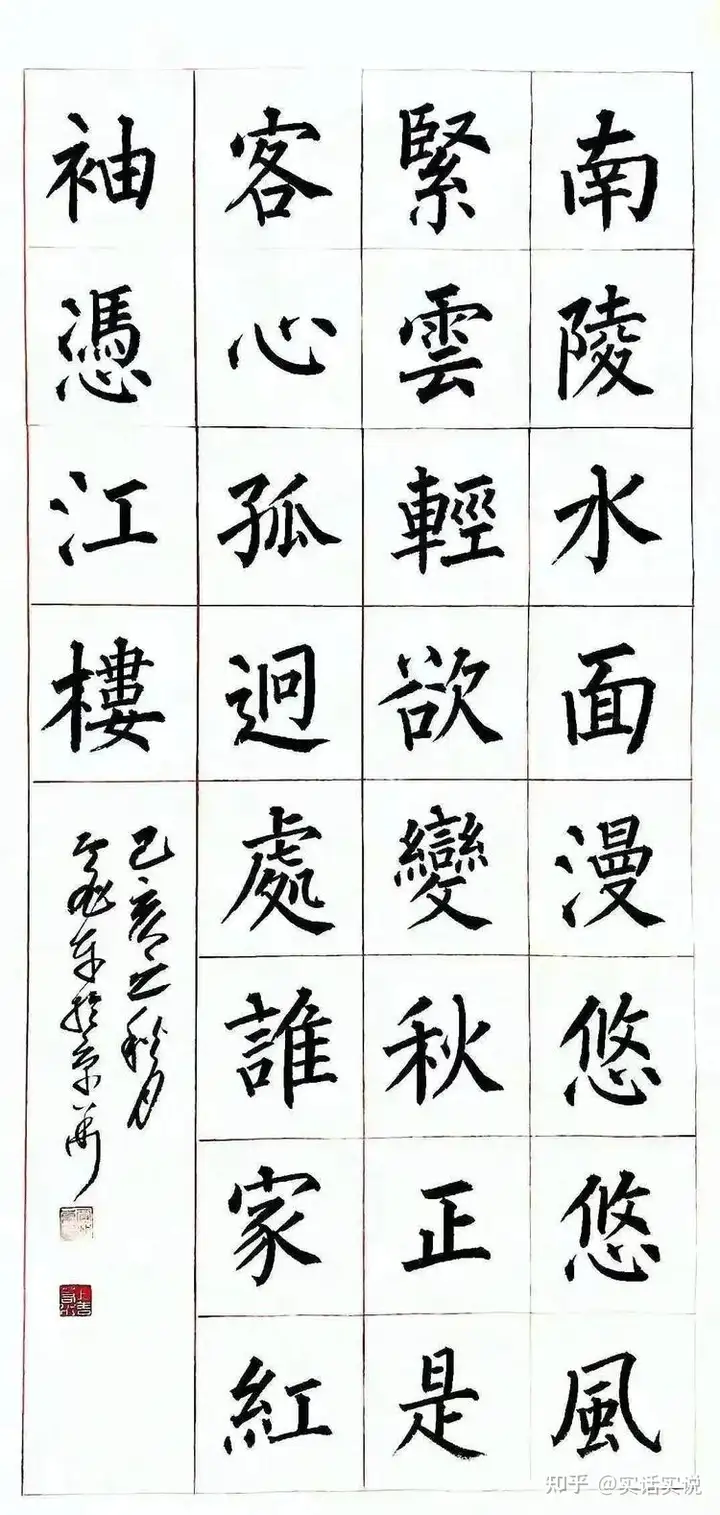 南陵水面漫悠悠風
緊雲輕欲變秋正是
客心孤迥處誰家紅
袖憑江樓
己亥之秋月
知乎 @实话实说